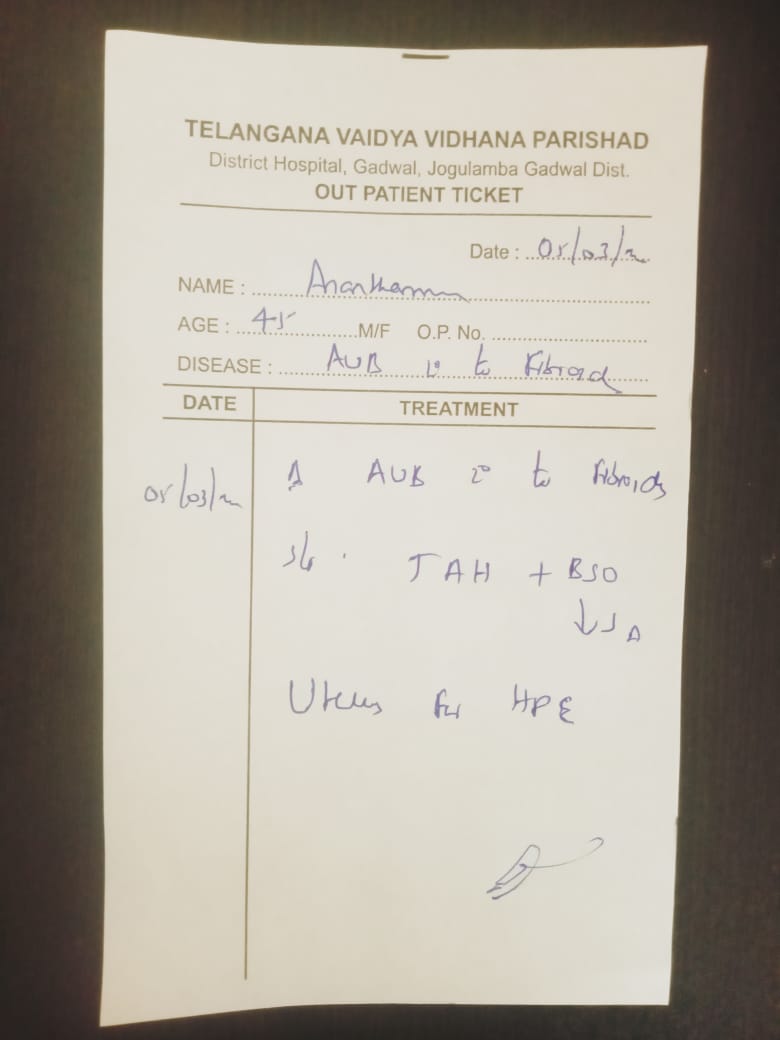 TELANGANA VAIDYA VIDHANA PARISHAD
District Hospital, Gadwal, Jogulamba Gadwal Dist.
OUT PATIENT TICKET
Date : 05/03/
NAME : Ananthamm
AGE : 45 M/F O.P. No.
DISEASE : AUB 2° to Fibroid
DATE TREATMENT
05/03/ Δ AUB 2° to Fibroids
TAH + BSO
↓ SA
Uterus for HPE